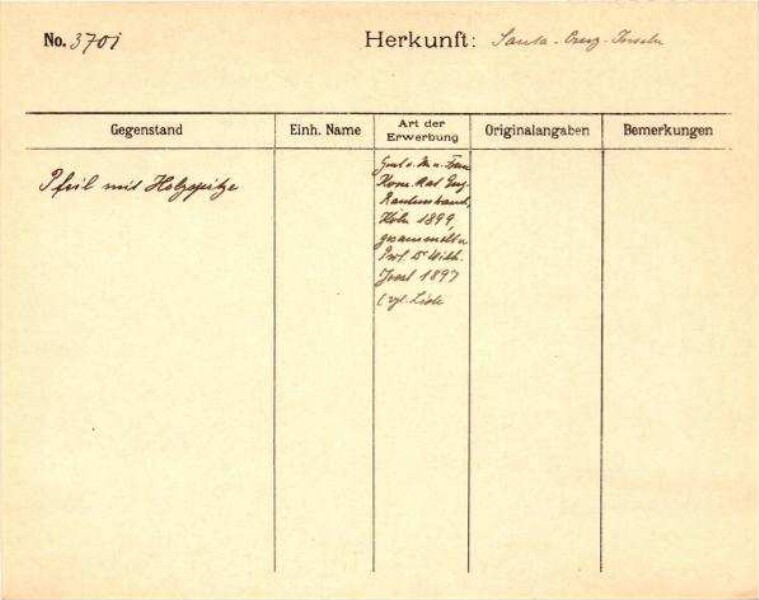 No. 3701
Herkunft: Santa-Cruz-Inseln
Gegenstand
Einh. Name
Art der
Erwerbung
Originalangaben
Bemerkungen
Pfeil mit Holzspitze
Kom. Rat Eug.
Rautenstrauch,
Köln 1899,
gesammelt v.
Prof. Dr Wilh.
Joest 1897
(vgl. Liste